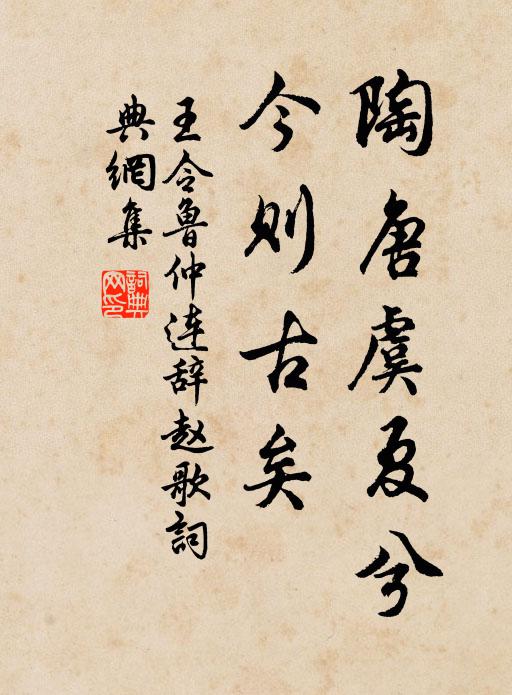 陶唐虞夏兮
今则古矣
王令鲁仲连辞赵歌詞
典網集
詞典网印